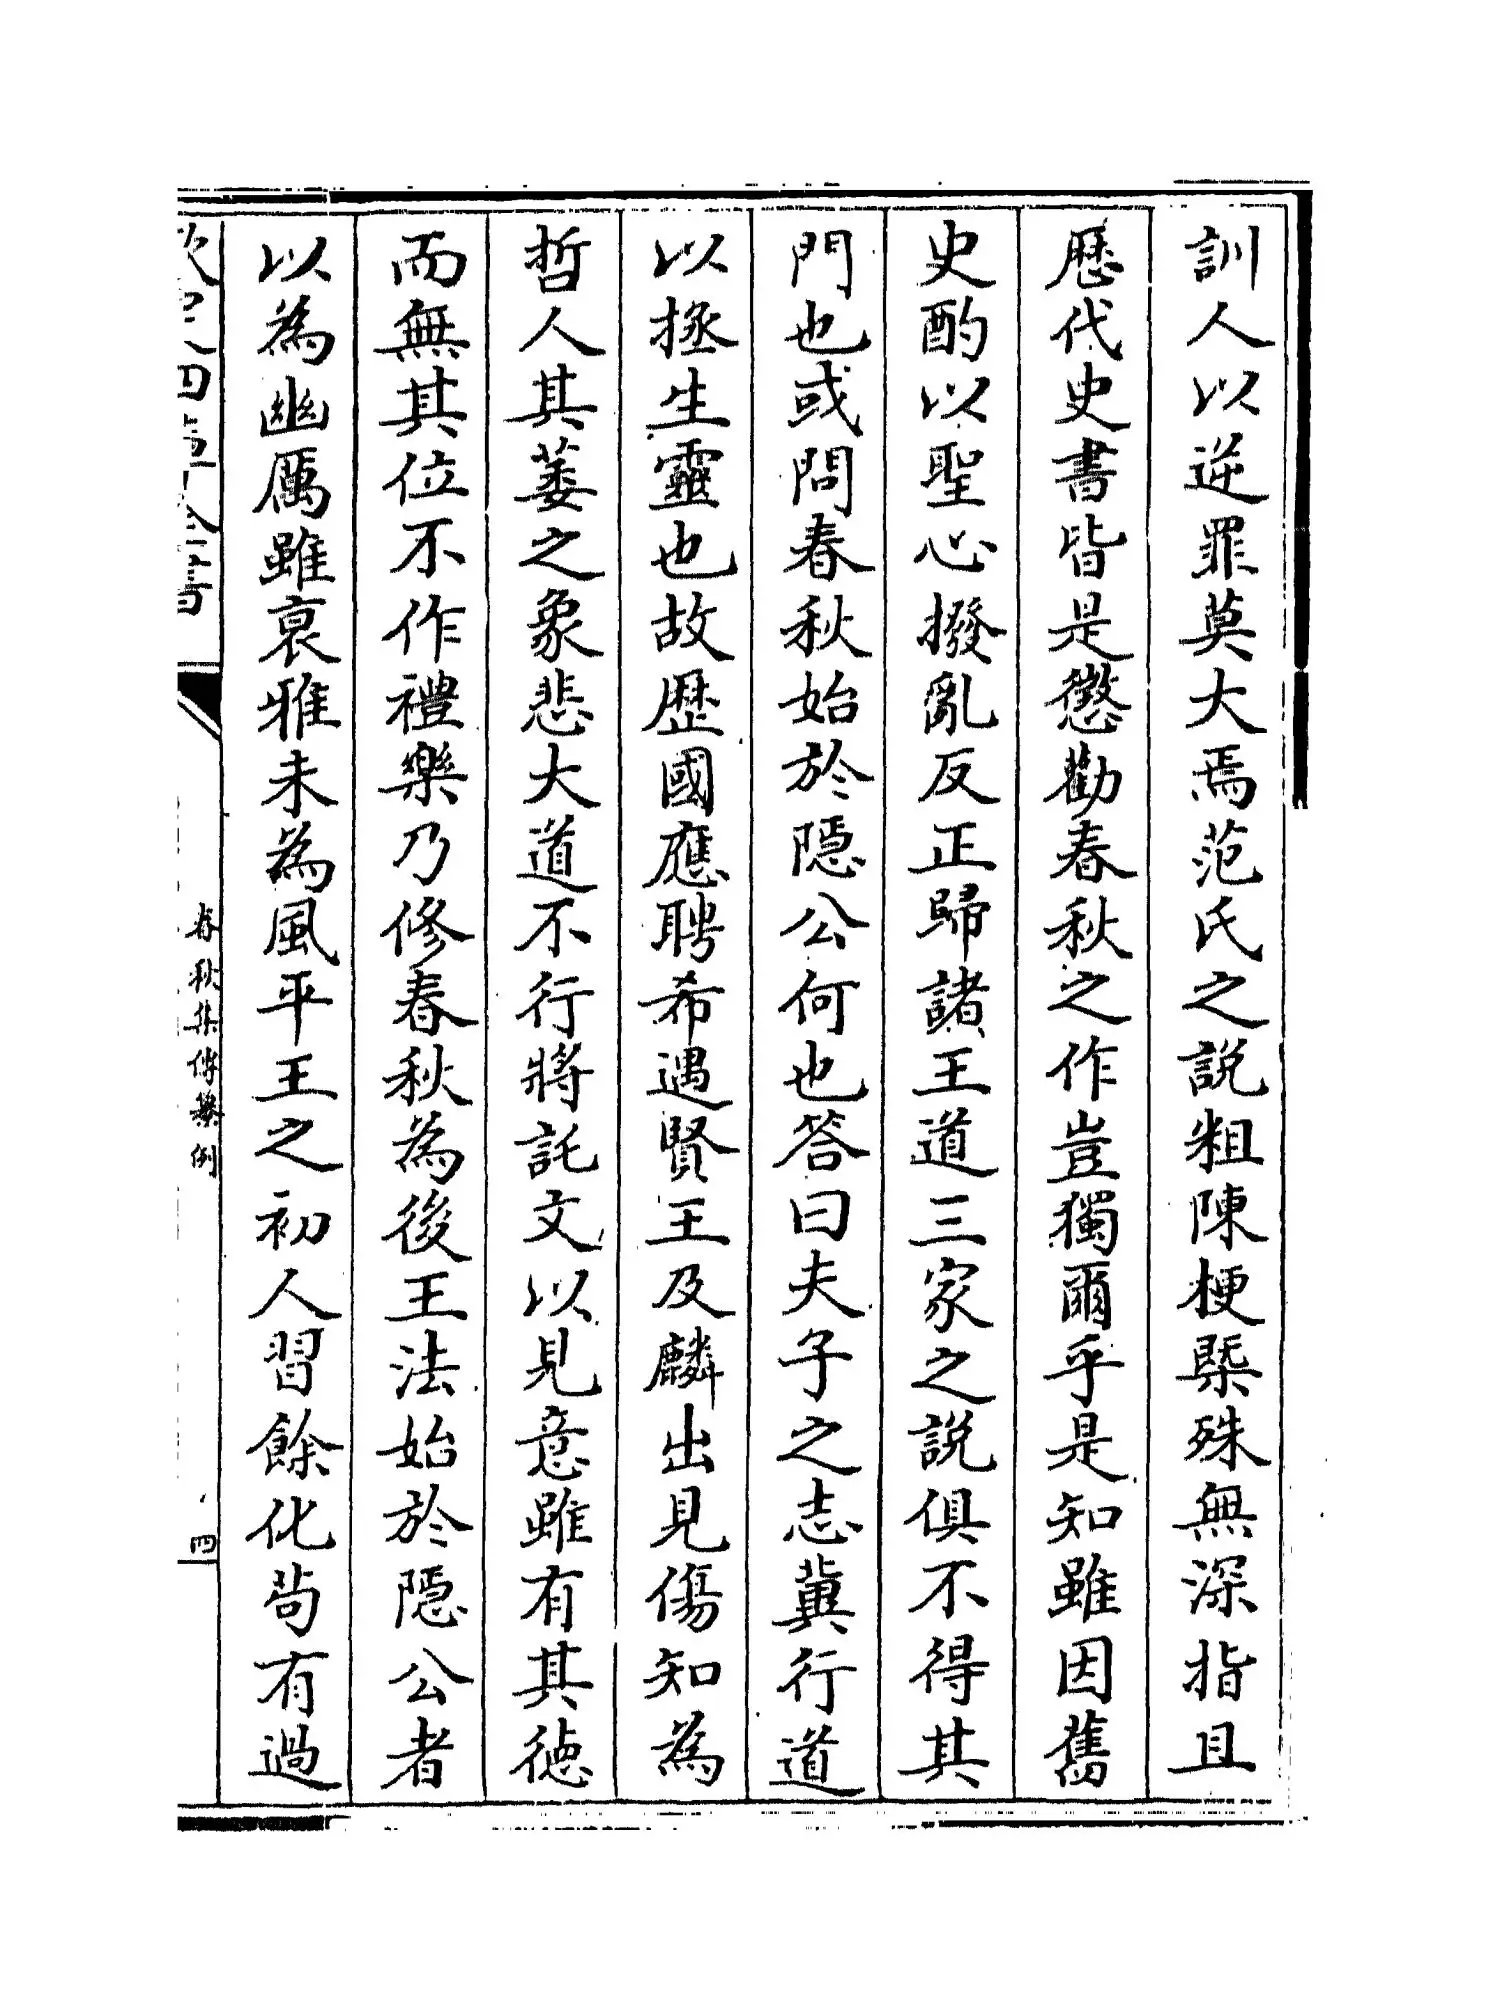 訓人以逆罪莫大焉范氏之說粗陳梗槩殊無深指且
歷代史書皆是懲勸春秋之作豈獨爾乎是知雖因舊
史酌以聖心撥亂反正歸諸王道三家之說俱不得其
門也或問春秋始於隱公何也答曰夫子之志冀行道
以拯生靈也故歷國應聘希遇賢王及麟出見傷知為
哲人其萎之象悲大道不行將託文以見意雖有其徳
而無其位不作禮樂乃修春秋為後王法始於隱公者
以為幽厲雖衰雅未為風平王之初人習餘化茍有過
欽定四庫全書
春秋集傳纂例
四